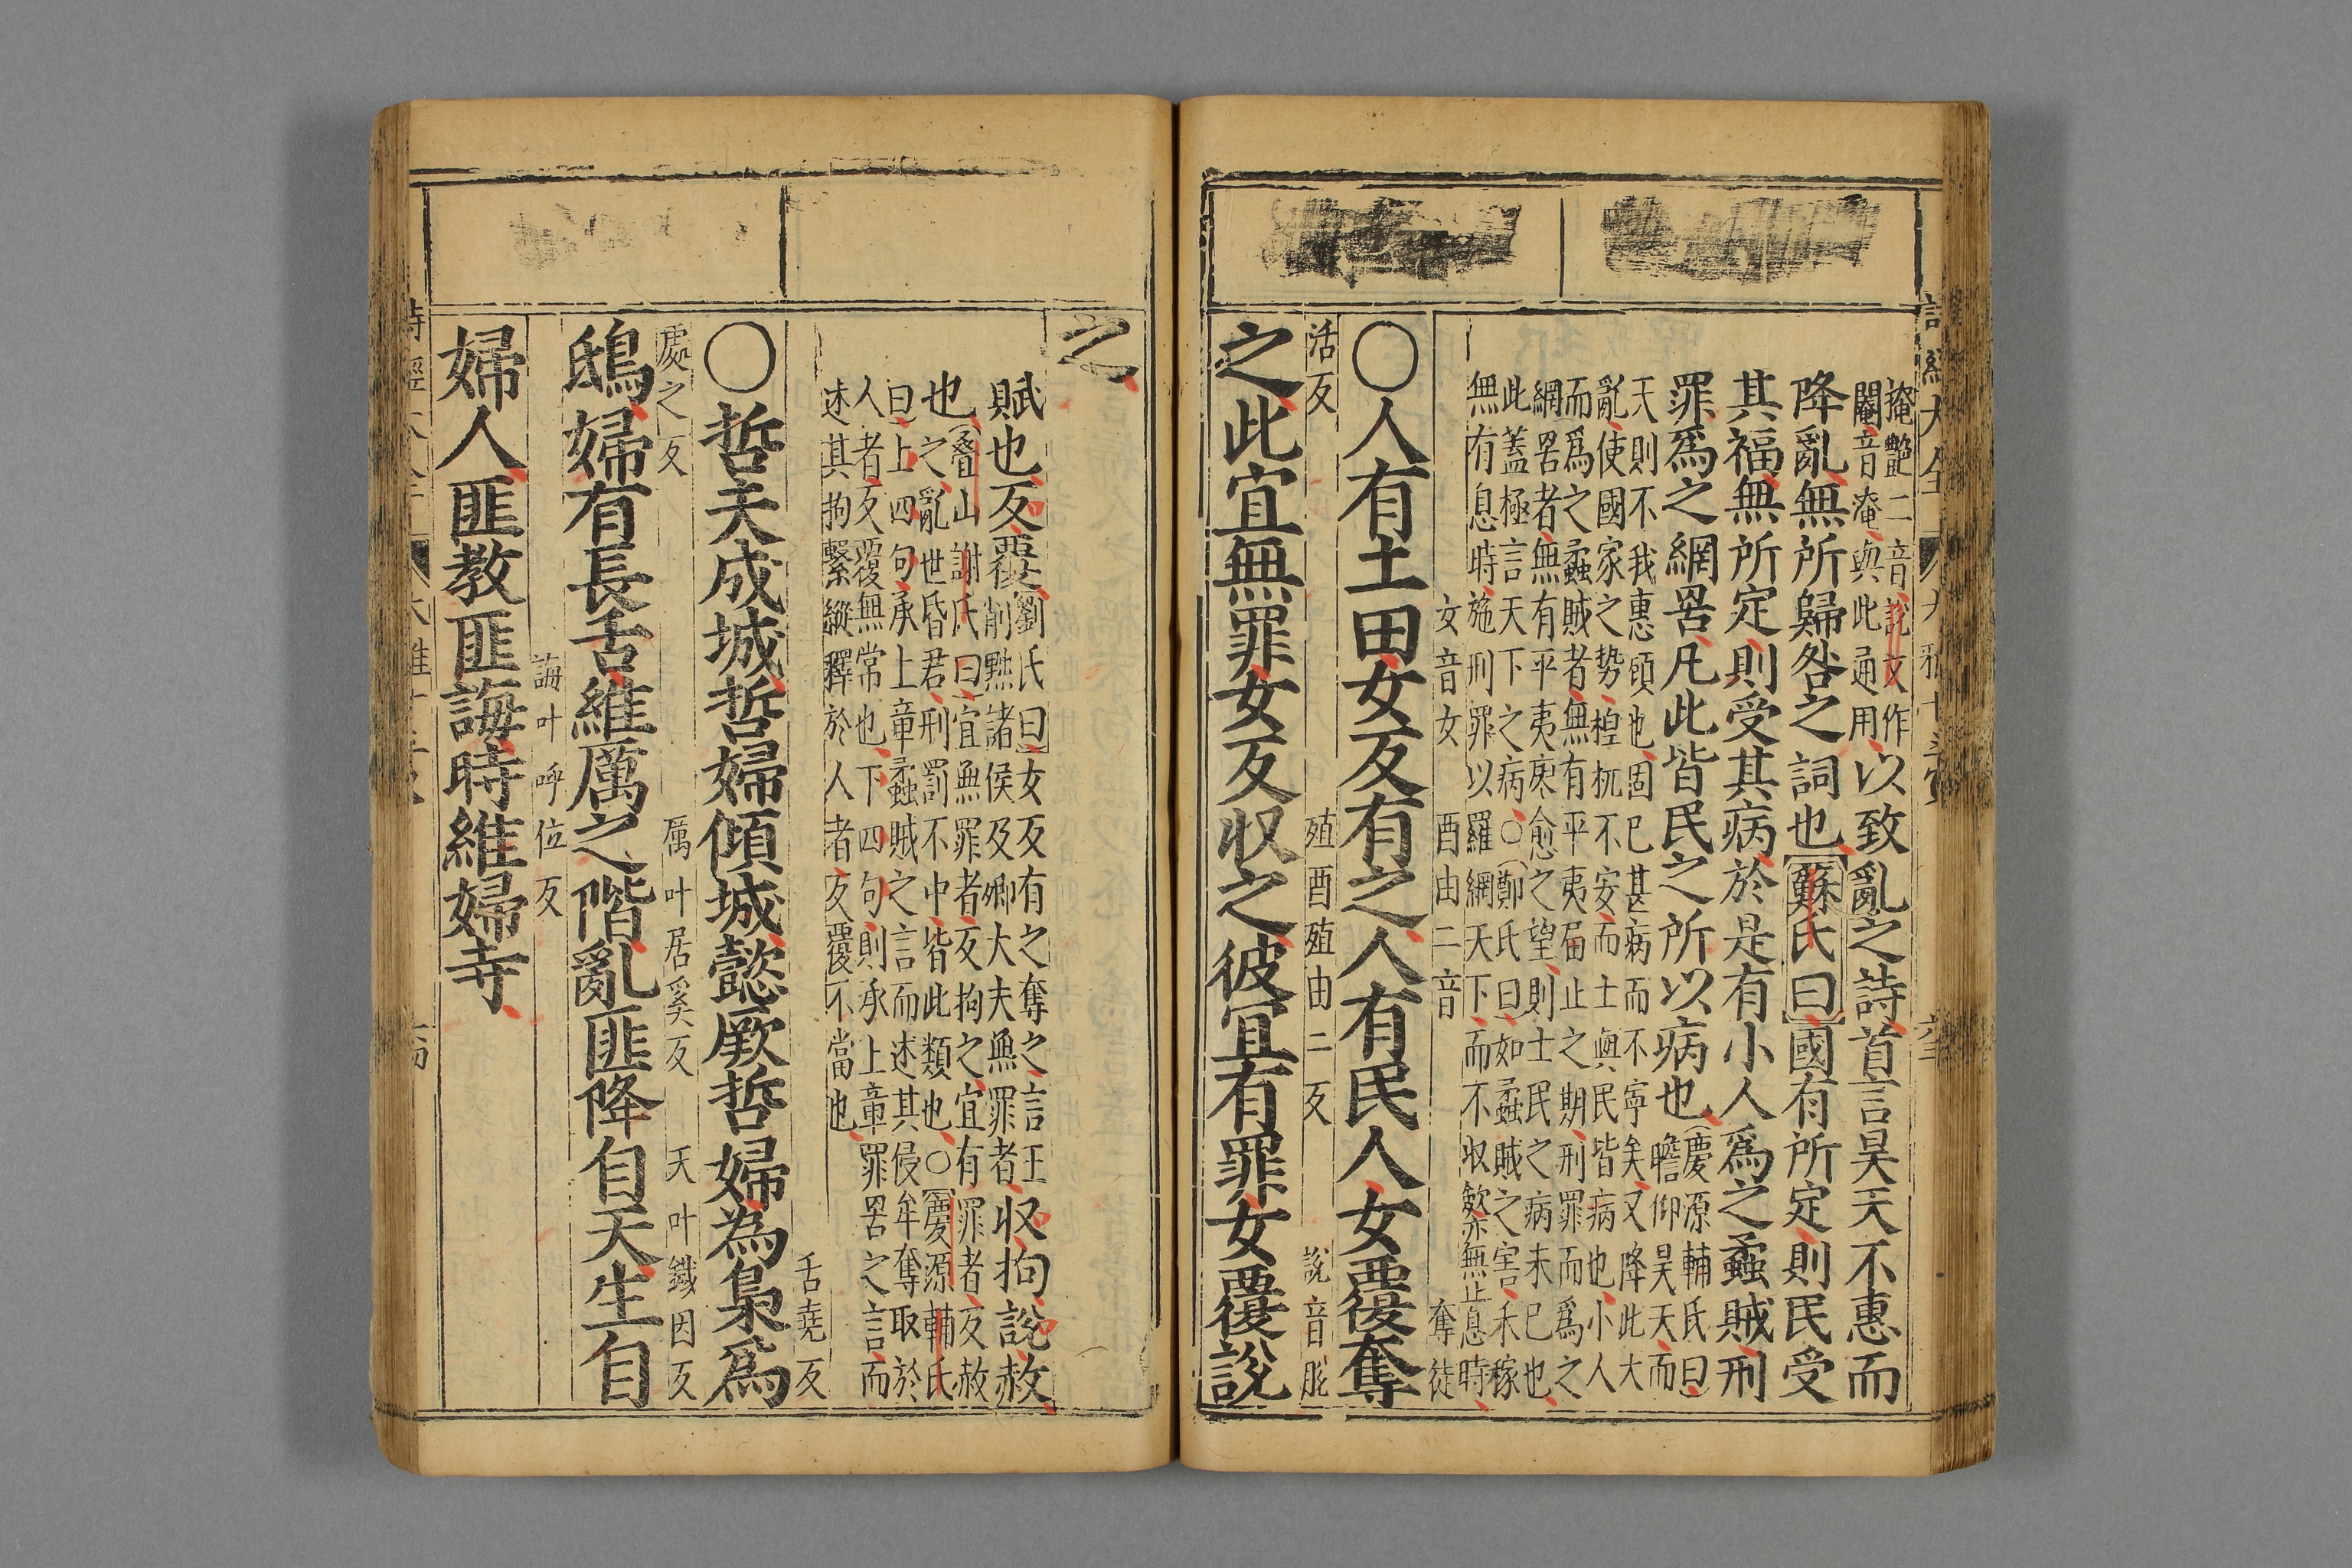 掩艷二音說文作
閹音淹與此通用以致亂之詩首言昊天不惠而
降亂無所歸咎之詞也蘇氏曰國有所定則民受
其福無所定則受其病於是有小人爲之蟊賊刑
罪爲之網罟凡此皆民之所以病也慶源輔氏曰
瞻仰昊天而
天則不我惠頋也固已甚病而不寧矣又降此大
亂使國家之势楻杌不安而士與民皆病也小人
而爲之蟊賊者無有平夷屆止之期刑罪而爲之
網罟者無有平夷瘳愈之望則士民之病未已也
此蓋極言天下之病○鄭氏曰如蟊賊之害禾稼
無有息時施刑罪以羅網天下而不収斂亦無止息時
女音女 酉由二音 奪徒
○人有土田女反有之人有民人女覆奪
活反 殖酉殖由二反 說音脫
之此宜無罪女反収之彼宜有罪女覆說
之
賦也反覆劉氏曰女反有之奪之言王収拘說赦
削黜諸侯及卿大夫無罪者
也疊山謝氏曰宜無罪者反拘之宜有罪者反赦
之亂世昏君刑罰不中皆此類也○慶源輔氏
曰上四句承上章蟊賊之言而述其侵牟奪取於
人者反覆無常也下四句則承上章罪罟之言而
述其拘繫縱釋於人者反覆不當也
舌堯反
○哲夫成城哲婦傾城懿厥哲婦為梟爲
處之反 厲叶居奚反 天叶鐵因反
鴟婦有長舌維厲之階亂匪降自天生自
誨叶呼位反
婦人匪教匪誨時維婦寺